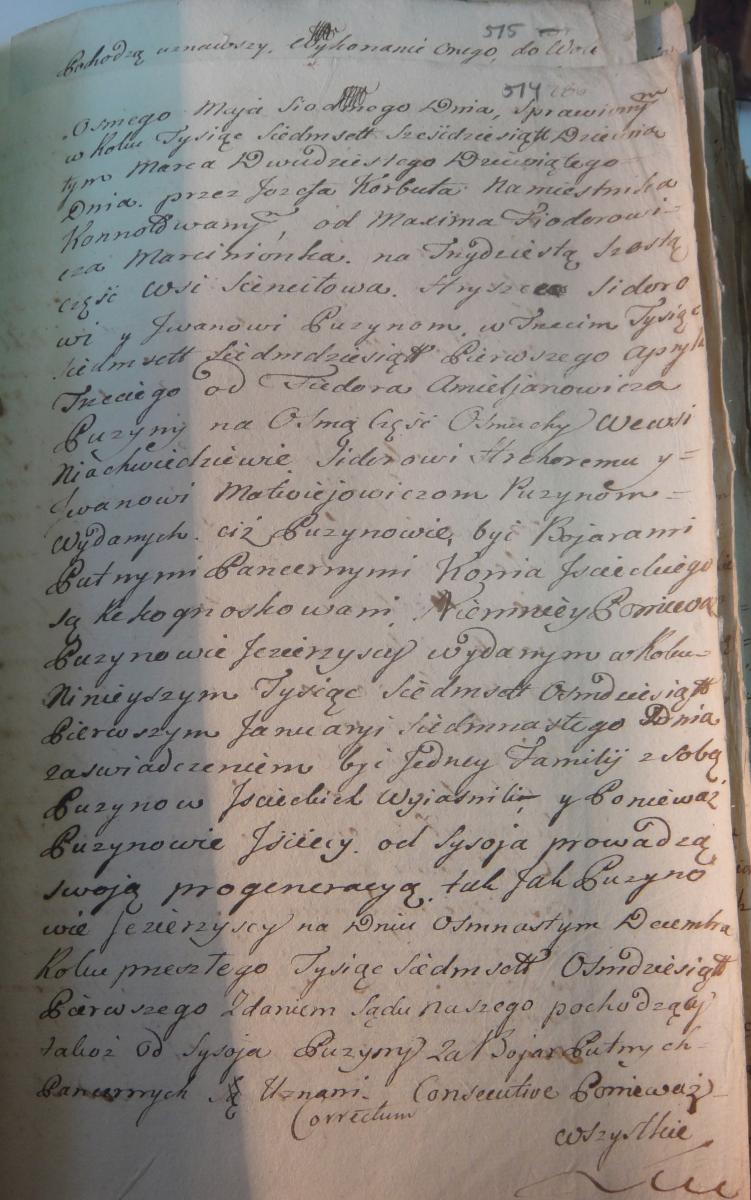 515
Pochodzą uznawszy, Wykonanie onego, do Woli
514
Osmego Maja Siodmego Dnia, Sprawionym
w Roku Tysiąc Siedmsett Sześcdziesiątt Dziewią
tym Marca Dwudziestego Dziewiątego
Dnia przez Jozefa Korbuta Namiestnika
od Maxima Fiodorowi-
cza Marcinionka na Trzydziestą Szostą
częsć Wsi Sienciłowa. Hryszce Sidoro
wi y Jwanowi Puzynom, w Trzecim Tysiąc
Siedmsett Siedmdziesiątt Pierwszego Apryla
Trzeciego od Fiedora Amieljanowicza
Puzyny na Osmą Częsć Osmuchy We wsi
Niachwiedziewie Sidorowi Hrehoremu y=
Jwanowi Matwiejowiczom Puzynom=
Wydanych. ciż Puzynowie, być Bojarami
Putnymi Pancernymi Konia Jscieckiego
są Rekognoskowani, Niemniey Ponieważ
Puzynowie Jezierzyscy wydanym w Roku=
Ninieyszym Tysiąc Siedmsett Osmdziesiątt
Pierwszym Januaryi Siedmnastego Dnia
zaswiadczeniem być Jedney Familij z sobą
Puzynow Jscieckich Wyiasnili, y Ponieważ
Puzynowie Jscieccy od Sysoja prowadzą
swoją progeneracyą, tak Jak Puzyno
wie Jezierzyscy na Dniu Osmnastym Decembra
Roku przeszłego Tysiąc Siedmsett Osmdziesiątt
Pierwszego Zdaniem Sądu naszego pochodzący
takoż od Sysoja Puzyny za Bojar Putnych-
Pancernych są Uznani. Consecutive Ponieważ
Correctum
wszystkie